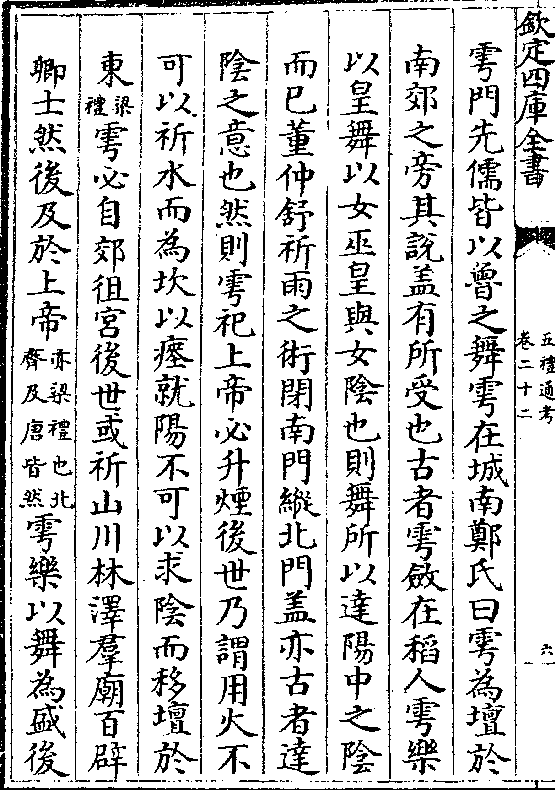 欽定四庫全書
五禮通考
卷二十二
六
雩門先儒皆以魯之舞雩在城南鄭氏曰雩為壇於
南郊之旁其說盖有所受也古者雩斂在稻人雩樂
以皇舞以女巫皇與女陰也則舞所以達陽中之陰
而已董仲舒祈雨之術閉南門縱北門盖亦古者達
陰之意也然則雩祀上帝必升煙後世乃謂用火不
可以祈水而為坎以瘞就陽不可以求陰而移壇於
東梁禮雩必自郊徂宮後世或祈山川林澤羣廟百辟
卿士然後及於上帝亦梁禮也北齊及唐皆然雩樂以舞為盛後